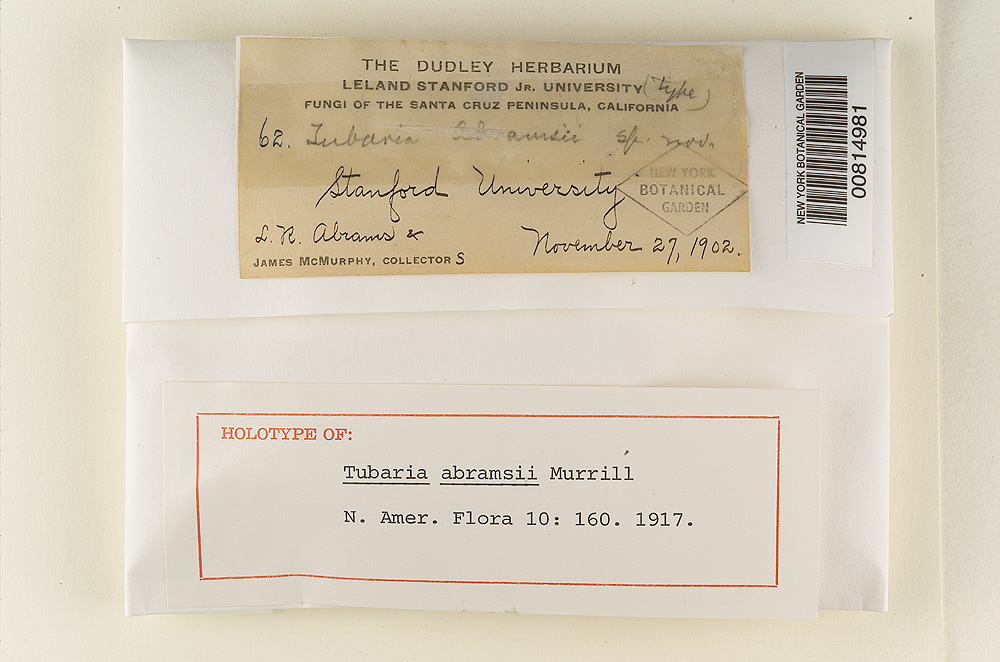 THE DUDLEY HERBARIUM
LELAND STANFORD JR. UNIVERSITY (type)
FUNGI OF THE SANTA CRUZ PENINSULA, CALIFORNIA
62. Tubaria Abramsii sp. nov.
Stanford University
NEW YORK
BOTANICAL
GARDEN
L. R. Abrams &
November 27, 1902.
JAMES MCMURPHY, COLLECTORS
NEW YORK BOTANICAL GARDEN
00814981
HOLOTYPE OF:
Tubaria abramsii Murrill
N. Amer. Flora 10: 160. 1917.